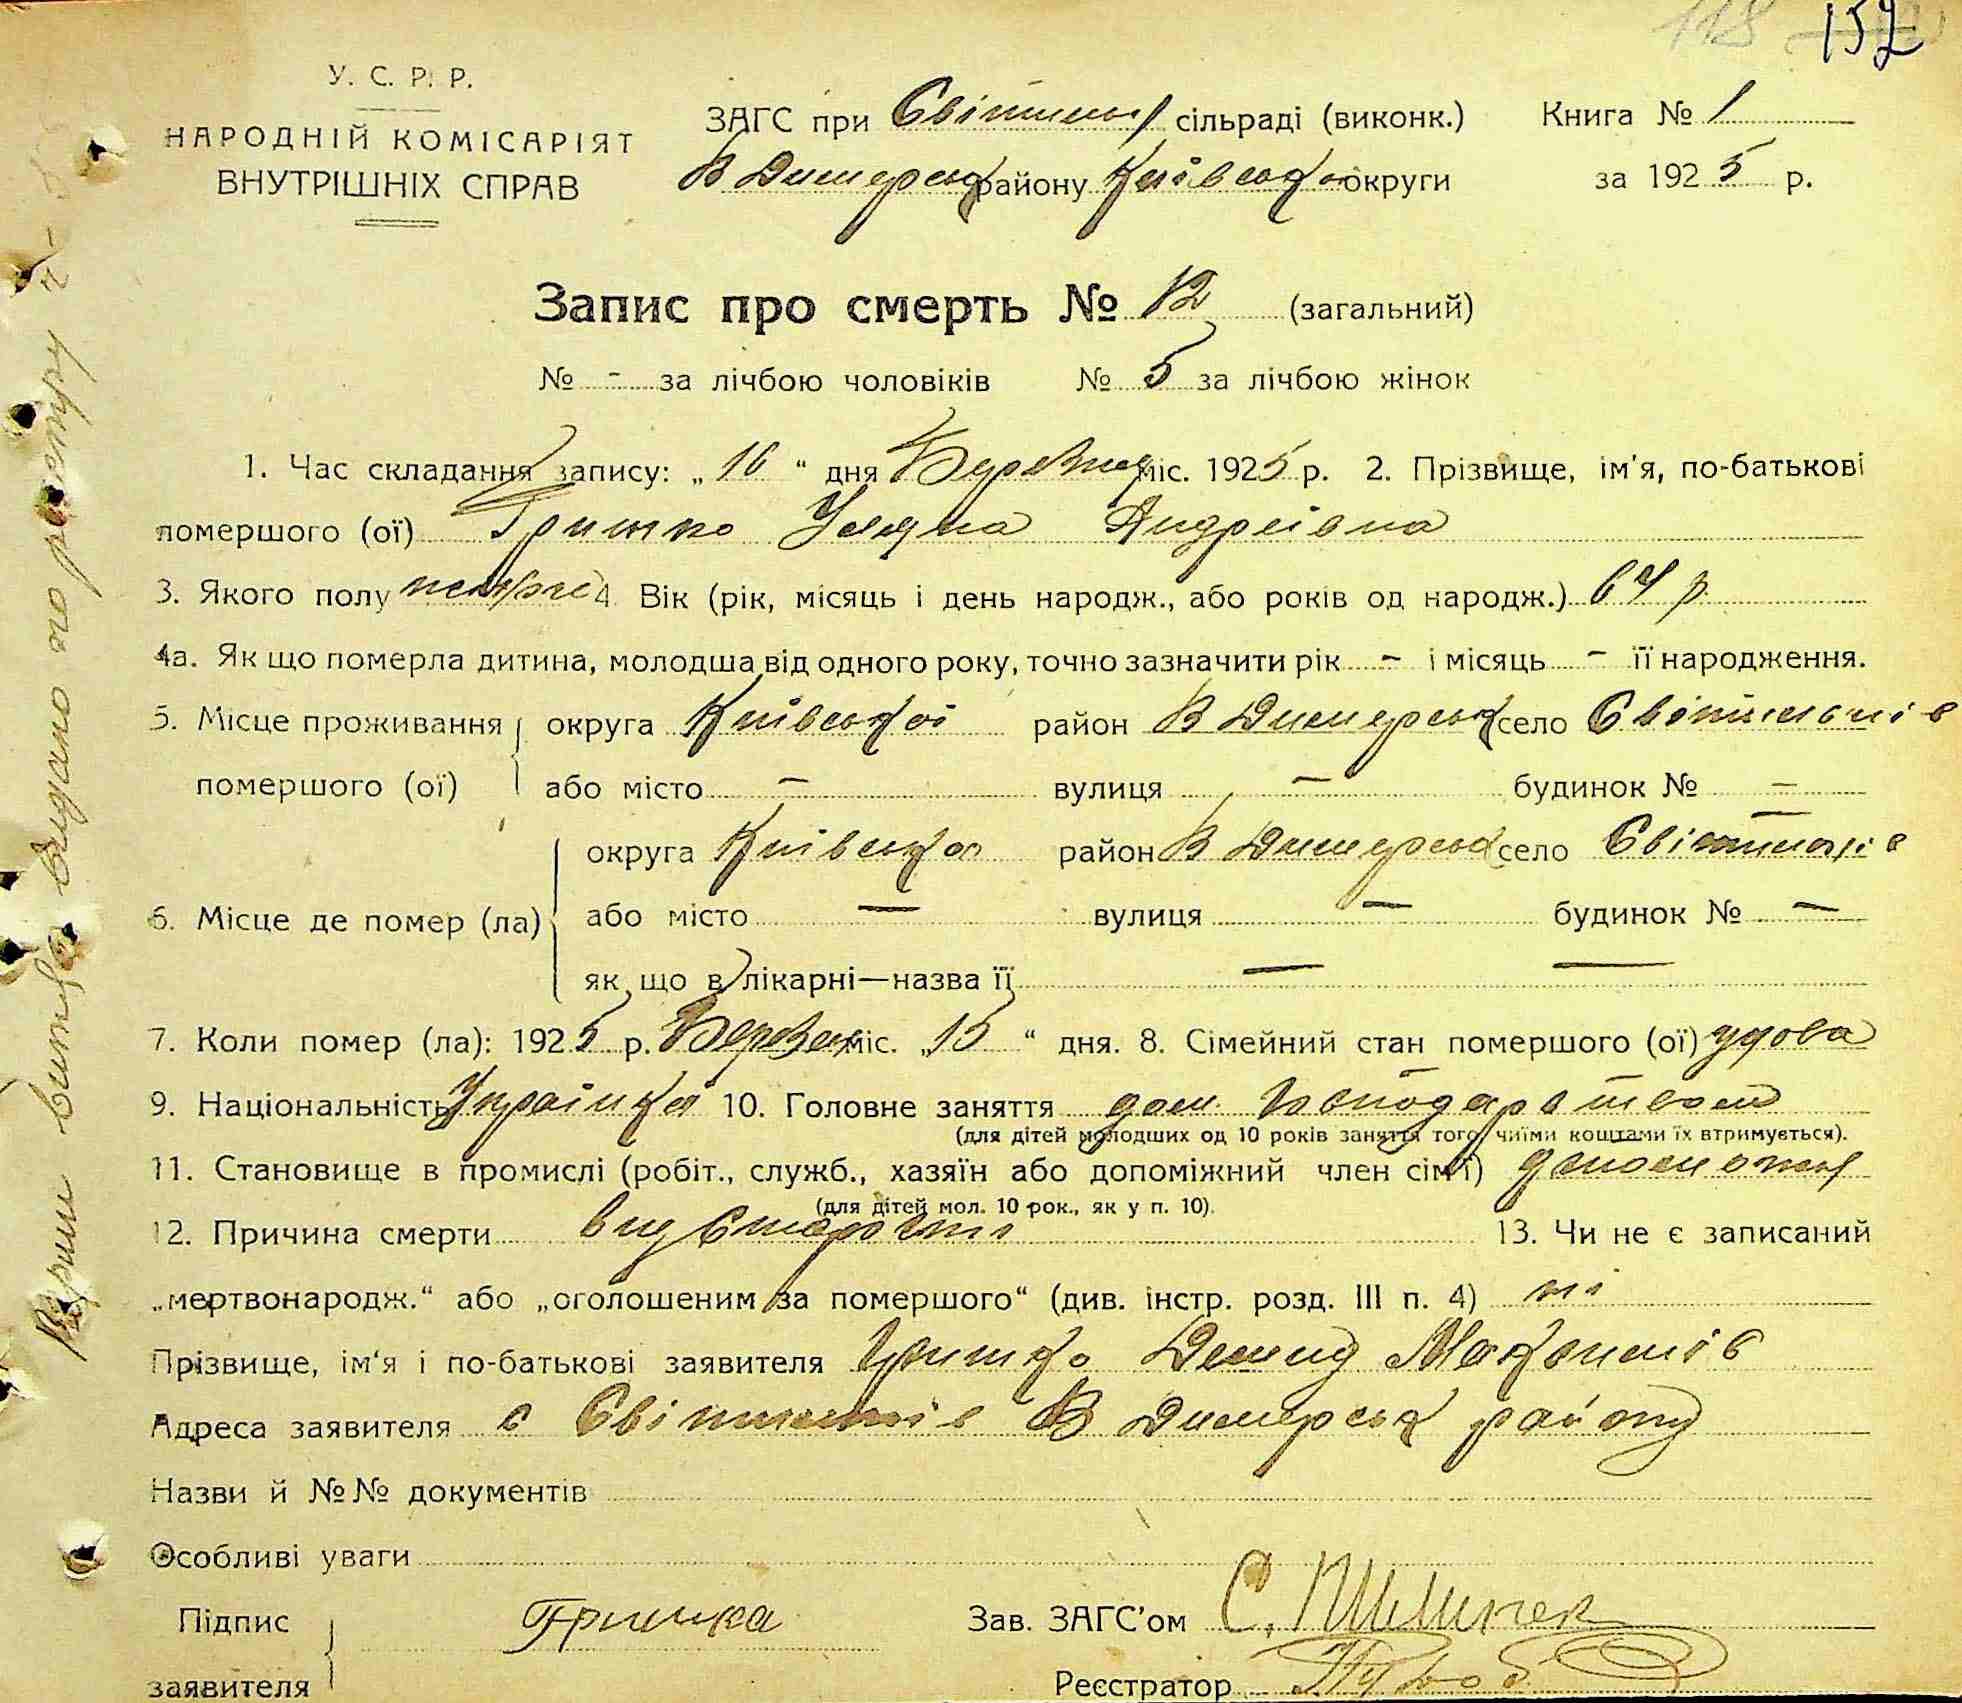 118 152
У. С. Р. Р.
НАРОДНІЙ КОМІСАРІЯТ
ВНУТРІШНІХ СПРАВ
ЗАГС при Світильн сільраді (виконк.) Книга № 1
В Димерськ району Київської округи за 1925 р.
Запис про смерть № 12 (загальний)
№ - за лічбою чоловіків № 5 за лічбою жінок
1. Час складання запису: „16“ дня Березня міс. 1925 р. 2. Прізвище, ім'я, по-батькові
помершого (ої) Гришко Уляна Андреівна
3. Якого полу 4. Вік (рік, місяць і день народж., або років од народж.) 64 р
4а. Як що померла дитина, молодша від одного року, точно зазначити рік - і місяць - її народження.
5. Місце проживання округа Київської район В Димерськ село Світильнів
помершого (ої) або місто — вулиця — будинок № —
округа Київської район В Димерськ село Світильнів
6. Місце де помер (ла) або місто — вулиця — будинок № —
як що в лікарні—назва її — —
7. Коли помер (ла): 1925 р. Березня міс. „15“ дня. 8. Сімейний стан помершого (ої) удова
9. Національність Українка 10. Головне заняття дом. господарством
(для дітей молодших од 10 років заняття того, чиїми коштами їх втримується).
11. Становище в промислі (робіт., служб., хазяїн або допоміжний член сім'ї)
(для дітей мол. 10 рок., як у п. 10).
12. Причина смерти вид старости 13. Чи не є записаний
„мертвонародж.“ або „оголошеним за помершого“ (див. інстр. розд. III п. 4) ні
Прізвище, ім'я і по-батькові заявителя Гришко Демид Максимів
Адреса заявителя с Світильнів В Димерськ району
Назви й №№ документів
Особливі уваги
Підпис Гришка Зав. ЗАГС'ом С.
заявителя Реєстратор
витяг видано по реєстру